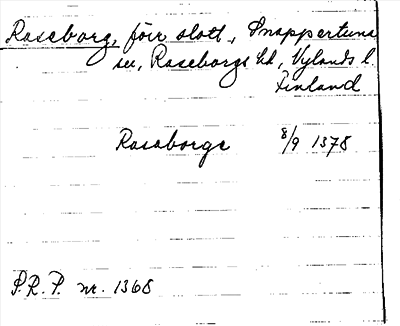 Raseborg, förr slott, Snappertuna
sn, Raseborgs hd, Nylands l.
Finland
Rasaborge 8/9 1378
S.R.P. nr. 1368